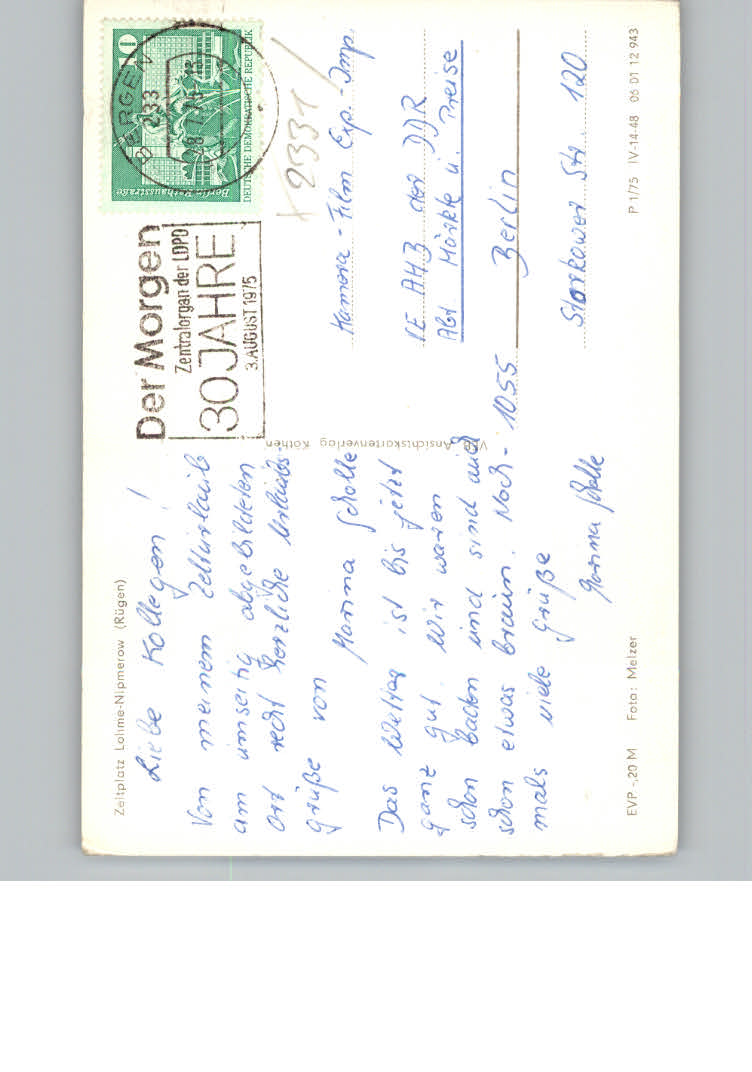 Zeltplatz Lohme-Nipmerow (Rügen)
Liebe Kollegen!
Von meinem Zelturlaub
am umseitig abgebildeten
Ort recht herzliche Urlaubs-
grüße von Marina Scholle
Das Wetter ist bis jetzt
ganz gut. Wir waren
schon baden und sind auch
schon etwas braun. Noch-
mals viele Grüße
Marina Scholle
EVP -,20 M Foto: Melzer
VEB Ansichtskartenverlag Köthen
Der Morgen
Zentralorgan der LDPD
30 JAHRE
3. AUGUST 1975
BERGEN
233
10
Berlin Rathausstraße
DEUTSCHE DEMOKRATISCHE REPUBLIK
2331
Kamera-Film Exp.-Imp.
VE AHB der DDR
Abt Märkte u. Preise
1055 Berlin
Storkower Str. 120
P 1/75 IV-14-48 05 01 12 943